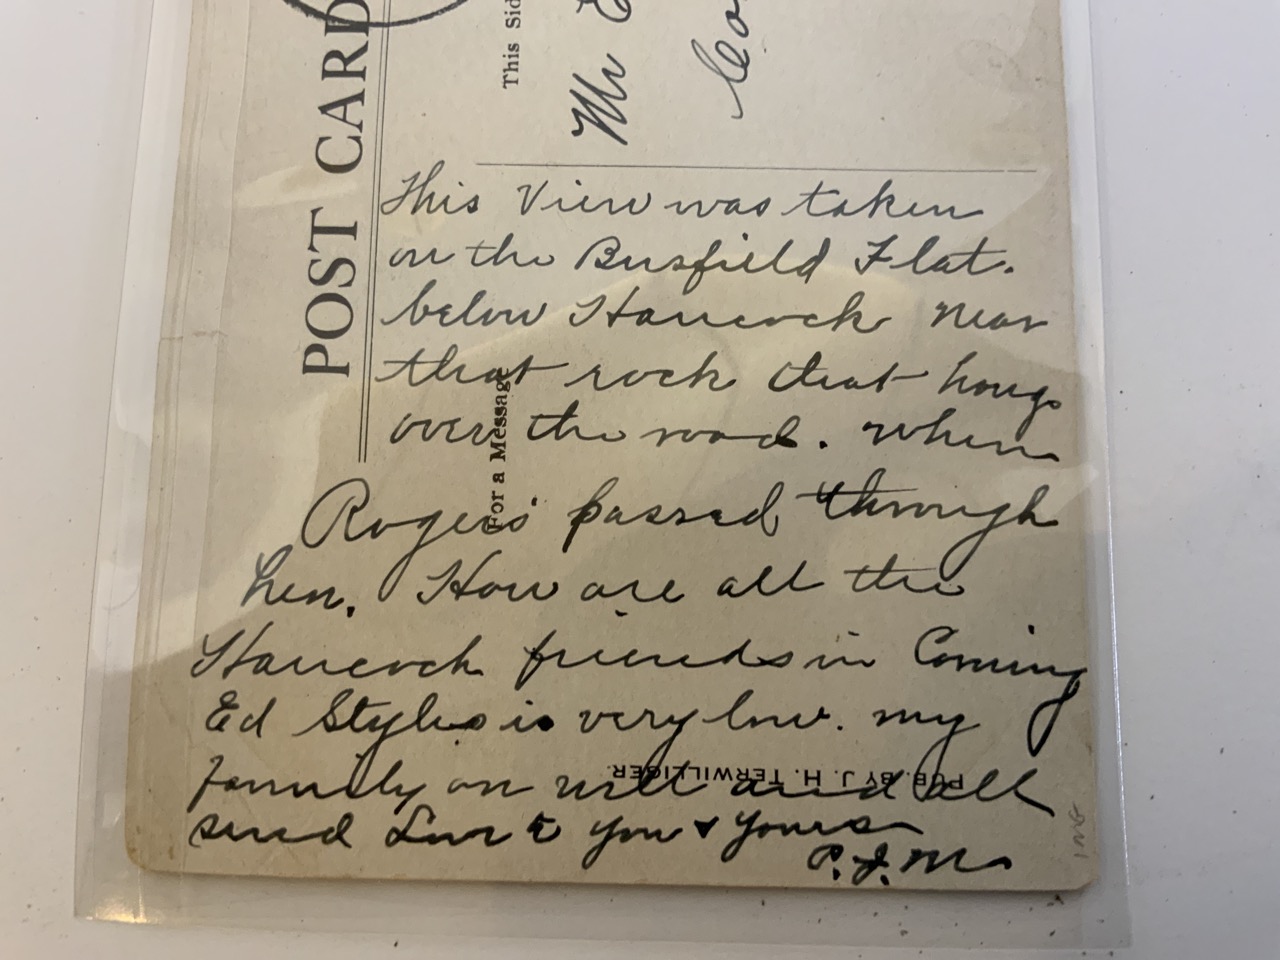 POST CARD
This Sid
Mr E
Co
This View was taken
on the Busfield Flat.
below Hancock near
that rock that hangs
over the road. when
For a Message
Rogers passed through
here. How are all the
Hancock friends in Corning
Ed Styles is very low. my
family are well and all
send Love to you & yours
P.J.M.
PUB. BY J. H. TERWILLIGER.